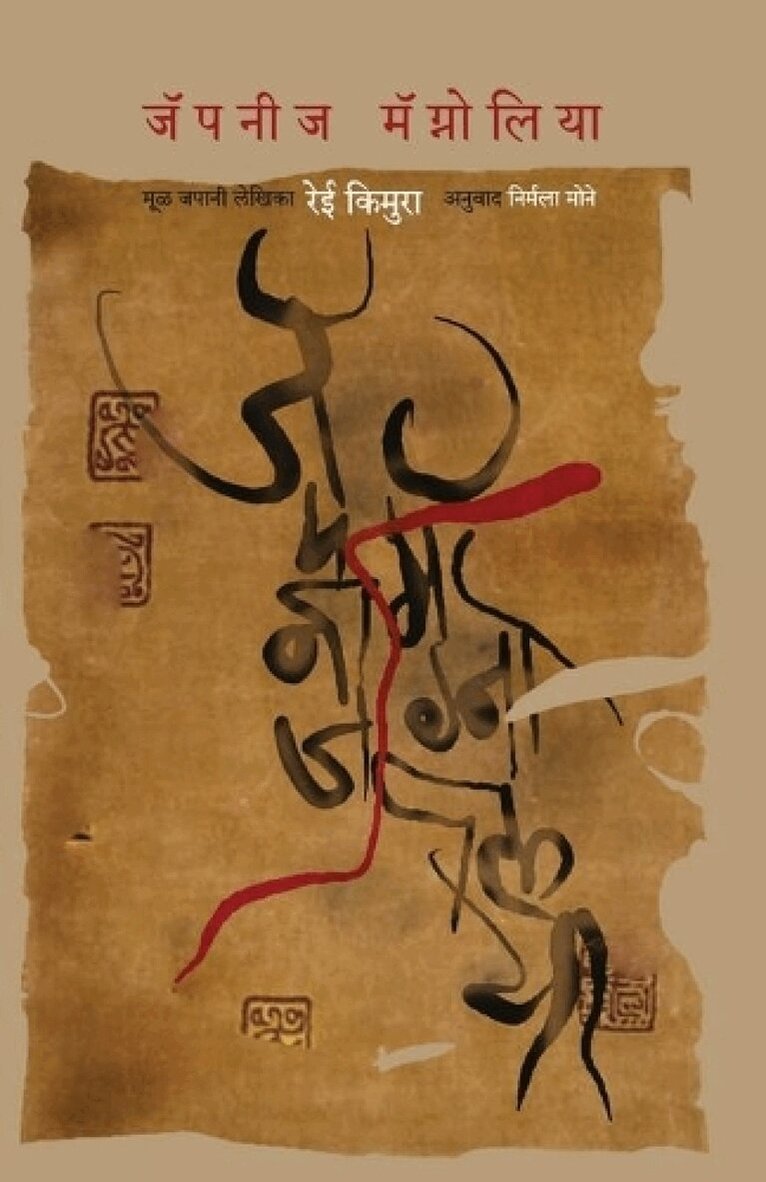 जॅपनीज मॅग्नोलिया
मूळ जपानी लेखिका रेई किमुरा अनुवाद निर्मला मोने
जॅपनीज
मॅग्नोलिया